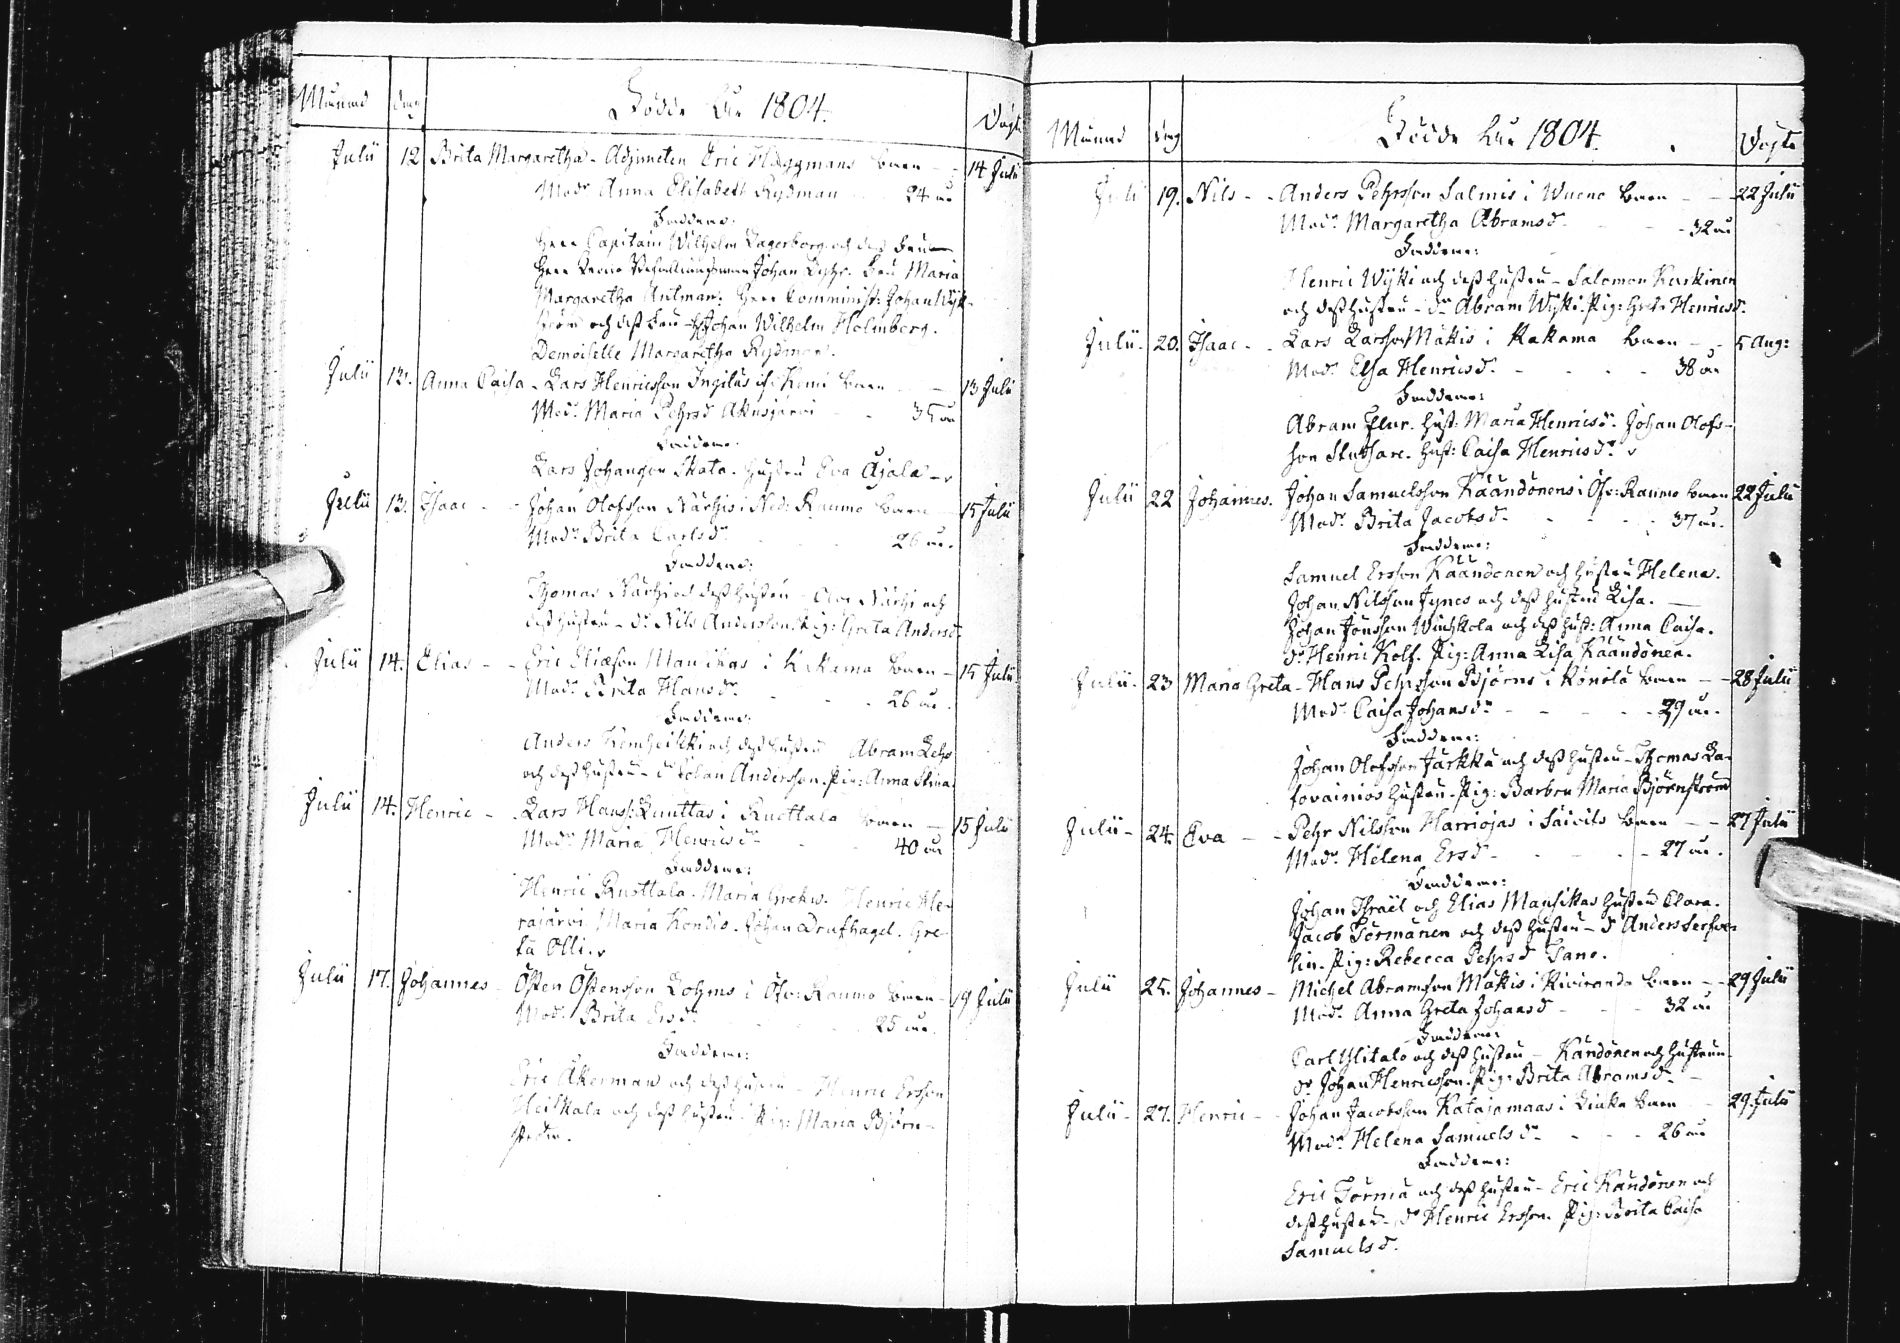 Månad dag Födde År 1804. Döpte
Julii 12 Brita Margaretha - Adjuncten Eric Häggmans barn - 14 Julii
Modr Anna Elisabeth Rydman - 24 år
Faddrar:
Herr Capitain Wilhelm Lagerborg och dess Fru
Herr Johan Fru Maria
Margaretha Antman. Herr Comminist: Johan Wijk-
ström och dess Fru - Johan Wilhelm Holmberg.
Demoiselle Margaretha Rydman.
Julii 13. Anna Caisa - Lars Henricsson i Kemi barn - 13 Julii
Modr Maria Pehrsdr Akusjärvi - 35 år
Faddrar:
Lars Johansson Skata. Hustru Eva Ajala -
Julii 13. Isaac - Johan Olofsson Närhis i Ned: Raumo barn 15 Julii
Modr Brita Carlsdr - 26 år.
Faddrar:
Thomas Närhi och dess hustru - Olof Närhi och
dess hustru - dr Nils Andersson. Pig: Greta Andersdr
Julii 14. Elias - Eric Eliæson Mansikas i Kakama barn - 15 Julii
Modr Brita Hansdr - 26 år.
Faddrar:
Anders och dess hustru Abram
och dess hustru - dr Johan Andersson. Pig: Anna Stina
Julii 14. Henric - Lars Hanss: i Ruottala barn - 15 Julii
Modr Maria Henricsdr - 40 år
Faddrar:
Henric Ruottala. Maria Henric
rajärvi Maria Kondis. Johan Drufhagel. Gre-
ta Olli.
Julii 17. Johannes - Östen Östensson Lohms i Öfv: Raumo barn - 19 Julii
Modr Brita Ersdr - 25 år.
Faddrar:
Eric Åkerman och dess hustru - Henric Ersson
Heikkala och dess hustru. Pig: Maria Björn-
ström.
Månad dag Födde År 1804. Döpte
Julii 19. Nils - Anders Pehrsson Salmis i Wueno barn - 22 Julii
Modr Margaretha Abramsdr - 32 år
Faddrar:
Henric Wyki och dess hustru - Salomon Karkinen
och dess hustru - dr Abram Wyki. Pig: Greta Henricsdr.
Julii - 20. Isaac - Lars Larsson Mäkis i Kakama barn - 5 Aug:
Modr Elsa Henricsdr - 38 år
Faddrar:
Abram hust: Maria Henricsdr. Johan Olofs-
son hust: Caisa Henricsdr.
Julii 22 Johannes. Johan Samuelsson Käändönens i Öfv: Raumo barn 22 Julii
Modr Brita Jacobsdr - 37 år.
Faddrar:
Samuel Ersson Käändönen och hustru Helena.
Johan Nilsson Tynes och dess hustru Lisa.
Johan Jönsson och dess hust: Anna Caisa.
dr Henric Kolf. Pig: Anna Lisa Käändönen.
Julii - 23 Maria Greta - Hans Pehrsson Björns i Könölä barn - 28 Julii
Modr Caisa Johansdr - 29 år.
Faddrar:
Johan Olofsson Jarkka och dess hustru - Thomas La-
tovainios hustru. Pig: Barbru Maria Björnström
Julii - 24. Eva - Pehr Nilsson Harriojas i Säivits barn - 27 Julii
Modr Helena Ersdr - 27 år.
Faddrar:
Johan Israël och Elias Mansikas hustru Clara.
Jacob Törmänen och dess hustru - dr Anders
lin. Pig: Rebecca Pehrsdr Tano.
Julii 25. Johannes - Michel Abramsson Mäkis i Kiviranda barn - 29 Julii
Modr Anna Greta Johansdr - 32 år
Faddrar:
Carl Ylitalo och dess hustru - Kändönen och hustrun
dr Johan Henricsson. Pig: Brita Abramsdr -
Julii - 27. Henric - Johan Jacobsson Katajamaas i Liakka barn - 29 Julii
Modr Helena Samuelsdr - 26 år
Faddrar:
Eric Törmä och dess hustru - Eric Kändönen och
dess hustru - dr Henric Ersson. Pig: Brita Caisa
Samuelsdr.